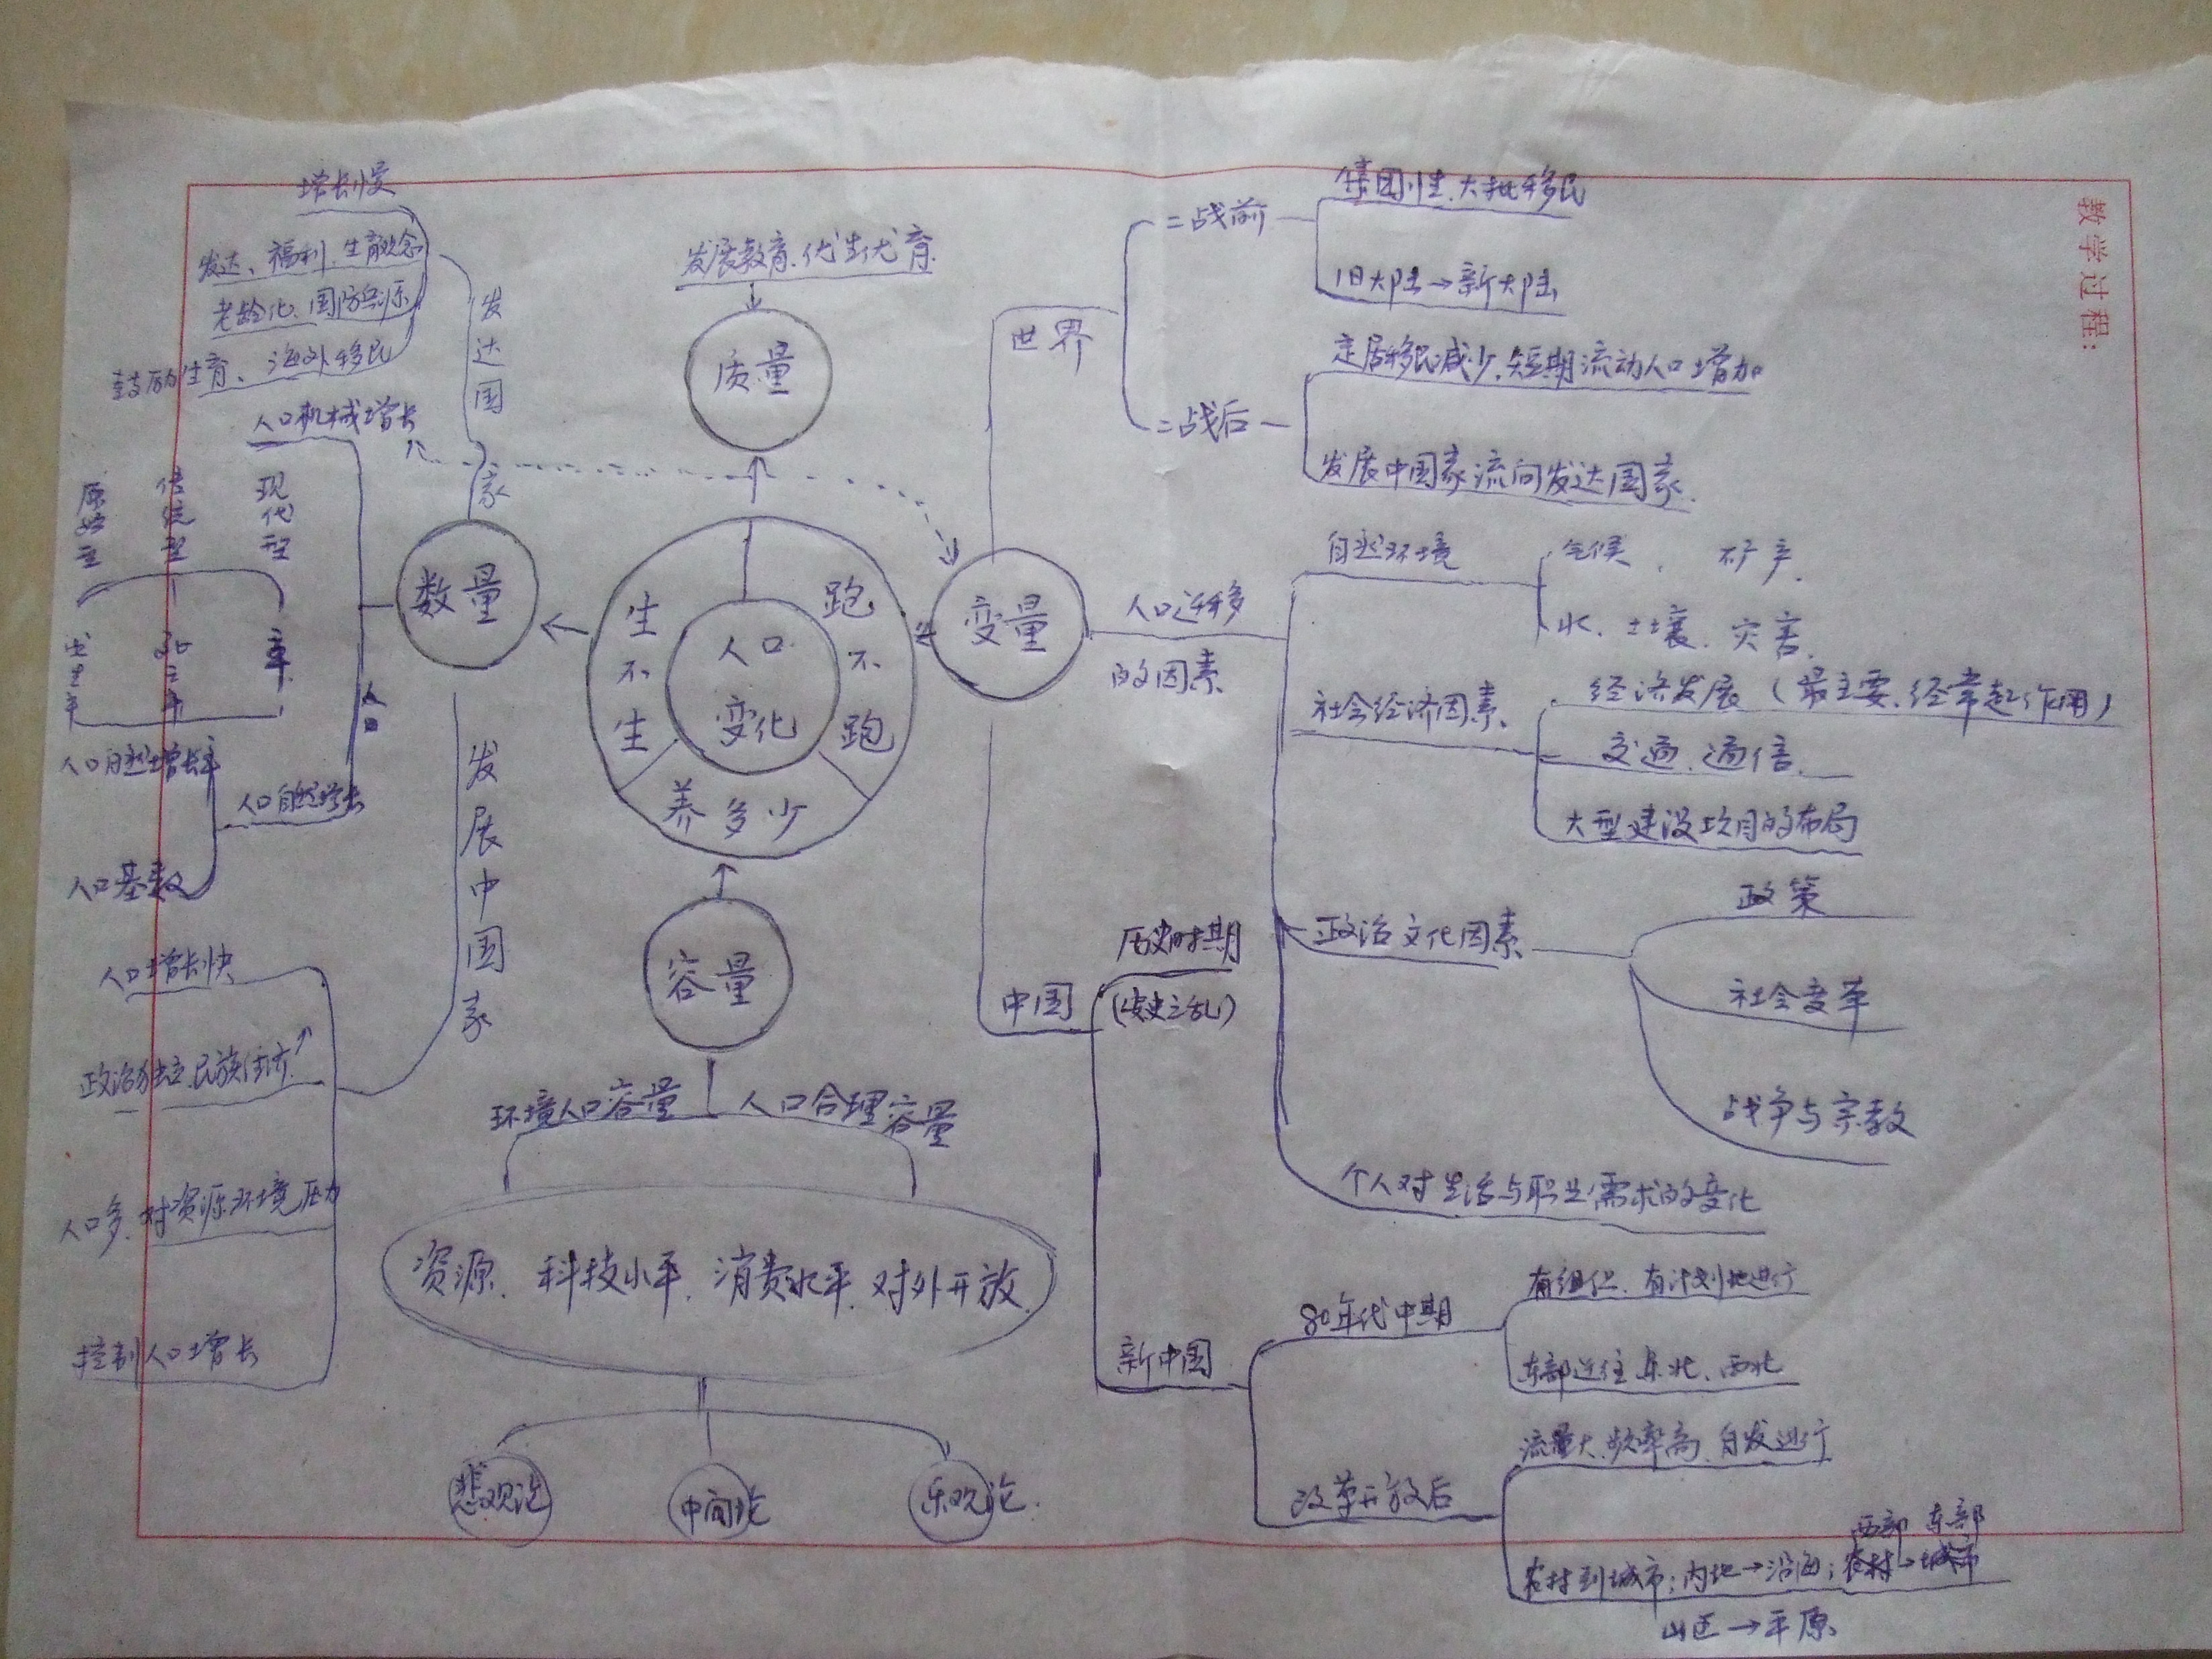 教学过程：
人口
变化
生不生
跑不跑
养多少
质量
发展教育、优生优育
数量
发达国家
增长慢
发达、福利、生育观念
老龄化、国防兵源
鼓励生育、海外移民
人口机械增长
原始型
传统型
现代型
出生率
死亡率
人口
人口自然增长率
人口自然增长
人口基数
发展中国家
人口增长快
政治独立、民族经济↑
人口多、对资源环境压力
控制人口增长
容量
环境人口容量
人口合理容量
资源、科技水平、消费水平、对外开放
悲观论
中间论
乐观论
变量
世界
二战前
集团性、大批移民
旧大陆→新大陆
二战后
定居移民减少、短期流动人口增加
发展中国家流向发达国家
人口迁移
的因素
自然环境
气候、矿产、
水、土壤、灾害
社会经济因素
经济发展（最主要、经常起作用）
交通、通信
大型建设项目的布局
政治文化因素
政策
社会变革
战争与宗教
个人对生活与职业需求的变化
中国
历史时期
（安史之乱）
新中国
80年代中期
有组织、有计划地进行
东部迁往东北、西北
改革开放后
流量大、频率高、自发进行
西部 东部
农村到城市；内地→沿海；
山区→平原